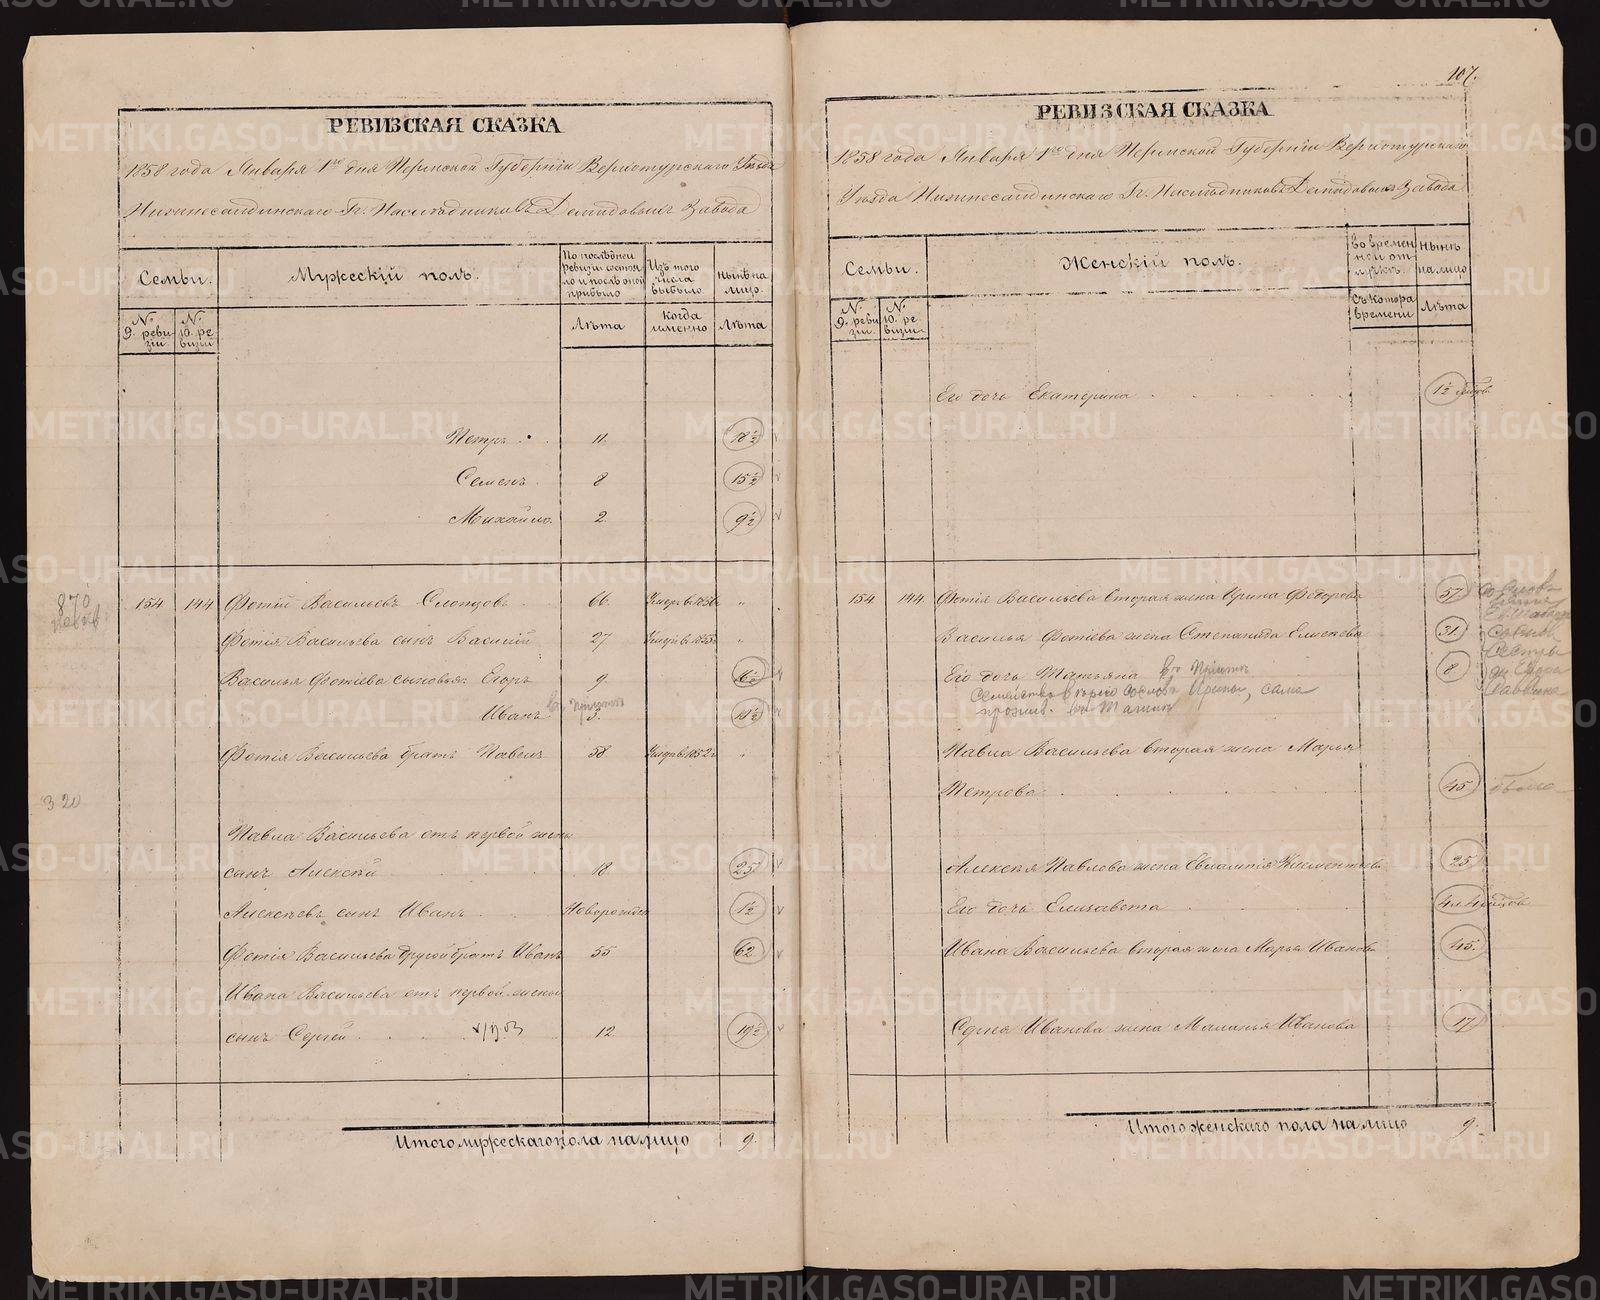 107.
РЕВИЗСКАЯ СКАЗКА
1858 года Января 1го дня Пермской Губерніи Верхотурскаго Уѣзда
Нижнесалдинскаго Гг. Наслѣдниковъ Демидовыхъ Завода
Семьи.
Мужескій полъ.
По послѣдней ревизіи состояло и послѣ оной прибыло
Изъ того числа выбыло.
нынѣ на лицо.
№. 9. ревизіи
№. 10. ревизіи
Лѣта
когда именно
Лѣта
Петръ 11. 18½
Семенъ 8 15½
Михайло. 2. 9½
870
154 144 Фотій Васильевъ Слопцовъ 66.
Фотія Васильева сынъ Василій 27
Василья Фотіева сыновья Егоръ 9.
Иванъ 3.
Фотія Васильева братъ Павелъ 58
320
Павла Васильева отъ первой жены
сынъ Алексѣй 18 25
Алексѣевъ сынъ Иванъ Новорожден 1½
Фотія Васильева другой братъ Иванъ 55 62
Ивана Васильева отъ первой жены
сынъ Сергей 12. 19½
Итого мужескаго пола на лицо 9.
РЕВИЗСКАЯ СКАЗКА
1858 года Января 1го дня Пермской Губерніи Верхотурскаго
Уѣзда Нижнесалдинскаго Гг. Наслѣдниковъ Демидовыхъ Завода
Семьи.
Женскій полъ.
во временной отлучкѣ.
нынѣ на лицо
№. 9. ревизіи
№. 10. ревизіи
Съ котора времени
Лѣта
Его дочь Екатерина 1½
154 144 Фотія Васильева вторая жена Ирина Федорова 57
Василья Фотіева жена Степанида Елисѣева 31.
Его дочь Татьяна 8
Павла Васильева вторая жена Марья
Петрова 45
Алексѣя Павлова жена Евлампія Климентьева 25
Его дочь Елисавета
Ивана Васильева вторая жена Марья Иванова 45.
Сергея Иванова жена Маланья Иванова 17
Итого женскаго пола на лицо 9.
METRIKI.GASO-URAL.RU